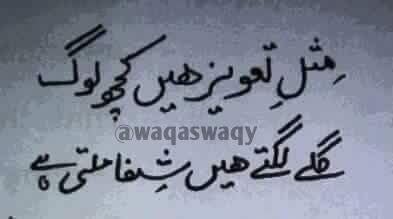 مِثلِ تعویز ھیں کچھ لوگ
@waqaswaqy
گلے لگتے ھیں شِفا ملتی ہے